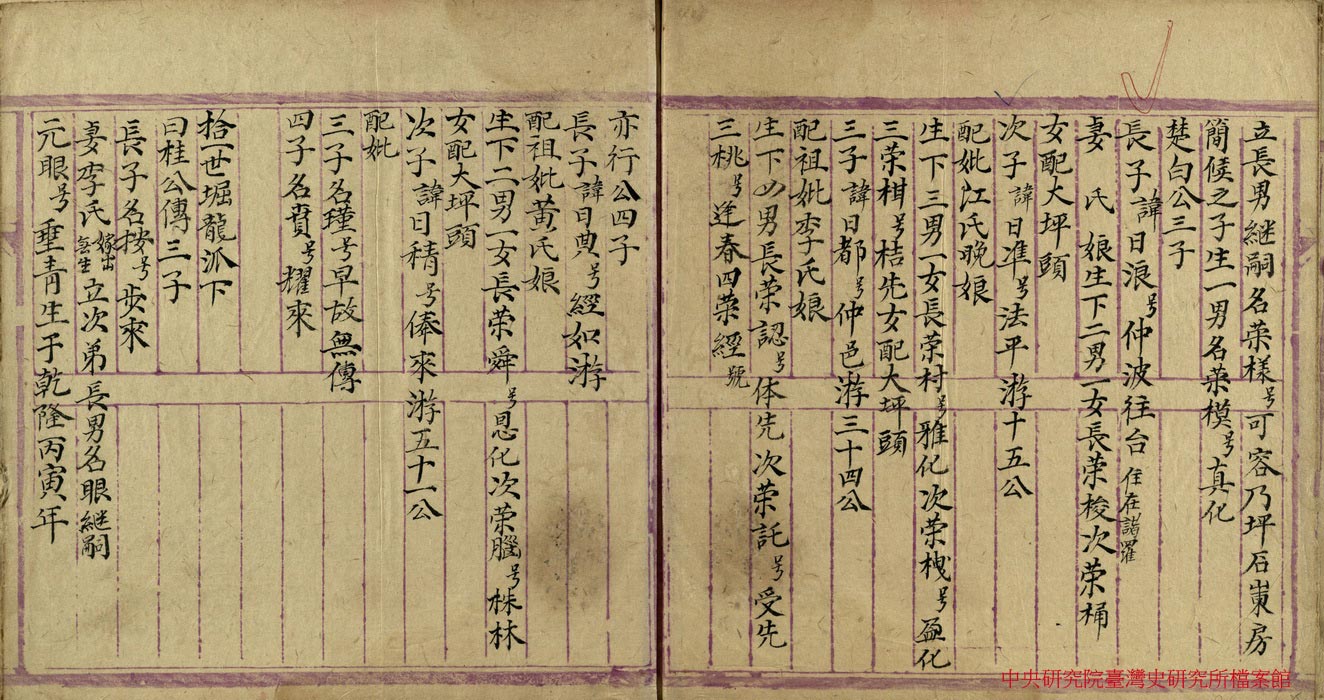 立長男継嗣名荣樣号可容乃坪石崬房
簡候之子生一男名荣模号真化
楚白公三子
長子諱曰浪号仲波往台住在諸羅
妻 氏 娘生下二男一女長荣梭次荣桶
女配大坪頭
次子諱曰準号法平游十五公
配妣江氏晚娘
生下三男一女長荣村号雅化次荣栧号盈化
三荣枏号桔先女配大坪頭
三子諱曰都号仲邑游三十四公
配祖妣李氏娘
生下四男長荣認号体先次荣託号受先
三桃号逢春四荣經號
亦行公四子
長子諱曰典号經如游
配祖妣黃氏娘
生下二男一女長荣舜号恩化次荣臘号株林
女配大坪頭
次子諱曰精号俸來游五十一公
配妣
三子名瑾号早故無傳
四子名賁号耀來
拾一世堀龍派下
曰桂公傳三子
長子名按号步來
妻李氏嫁出無生立次弟長男名眼継嗣
元眼号垂青生于乾隆丙寅年
中央研究院臺灣史研究所檔案館